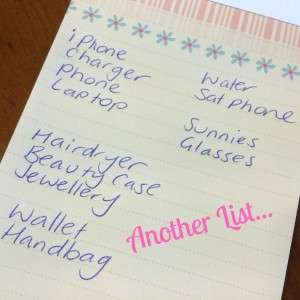 iPhone
Charger
Phone
Laptop
Hairdryer
Beauty Case
Jewellery
Wallet
Handbag
Water
Sat Phone
Sunnies
Glasses
Another List...